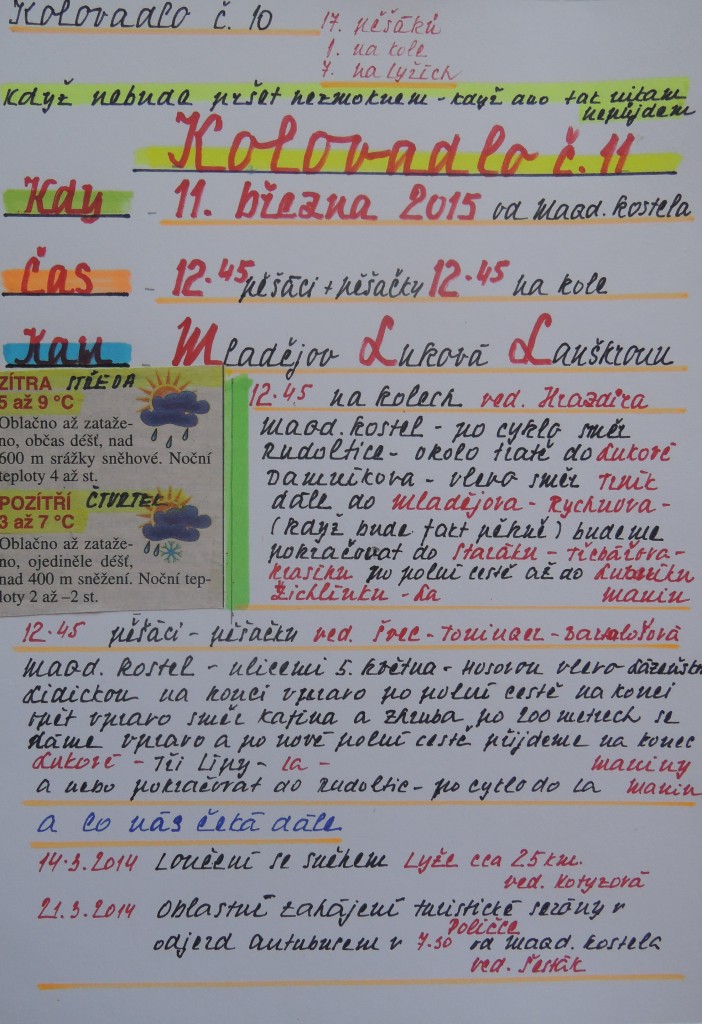 Kolovadlo č. 10
17. pěšáků
1. na kole
7. na lyžích
Když nebude pršet nezmoknem - když ano tak nikam
nepujdem
Kolovadlo č. 11
Kdy - 11. března 2015 od maad. kostela
Čas - 12.45 pěšáci + pěšačky 12.45 na kole
Kam - Mladějov Luková Lanškroun
ZÍTRA STŘEDA
5 až 9 °C
Oblačno až zataže-
no, občas déšť, nad
600 m srážky sněhové. Noční
teploty 4 až st.
POZÍTŘÍ ČTVRTEK
3 až 7 °C
Oblačno až zataže-
no, ojediněle déšť,
nad 400 m sněžení. Noční tep-
loty 2 až –2 st.
12.45 na kolech ved. Hrazdira
maad. kostel - po cyklo směr
Rudoltice - okolo tratě do Lukové
Damníkova - vlevo směr Trník
dále do mladějova - Rychnova -
(když bude fakt pěkně) budeme
pokračovat do Staráku - Tichářova -
Krasíku po polní cestě až do
Žichlínku - La manin
12.45 pěšáci - pěšačky ved. Švec - Toninger -
maad. kostel - ulicemi 5. května - Husovou vlevo
Lidickou na konci vpravo po polní cestě na konci
opět vpravo směr kafina a zhruba po 200 metrech se
dáme vpravo a po nové polní cestě přijdeme na konec
Lukové - Tři Lípy - La - maniny
a nebo pokračovat do Rudoltic - po cyklo do La manin
a co nás čeká dále
14.3.2014 Loučení se sněhem Lyže cca 25 km.
ved. Kotyzová
21.3.2014 Oblastní zahájení turistické sezóny v
Poličce
odjezd autubusem v 7.30 od maad. kostela
ved. Šesták